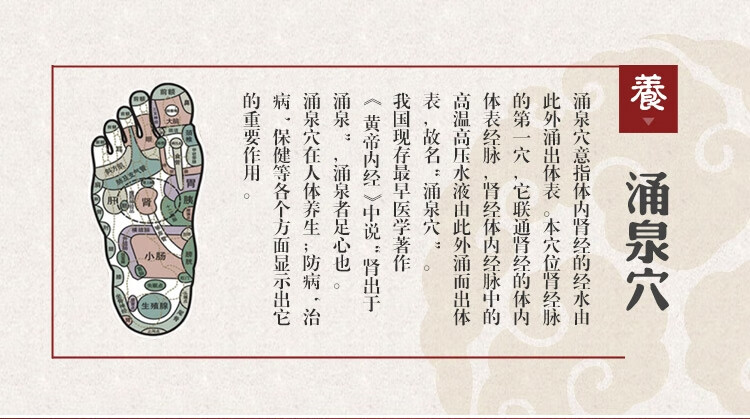 養
涌泉穴
涌泉穴意指体内肾经的经水由
此外涌出体表。本穴位肾经脉
的第一穴，它联通肾经的体内
体表经脉，肾经体内经脉中的
高温高压水液由此外涌而出体
表，故名“涌泉穴”。
我国现存最早医学著作
《黄帝内经》中说“肾出于
涌泉”，涌泉者足心也。
涌泉穴在人体养生；防病，治
病，保健等各个方面显示出它
的重要作用。
前额
大脑
鼻
眼
耳
斜方肌
肺及支气管
肝
肾
胃
胰
横结肠
小肠
膀胱
生殖腺